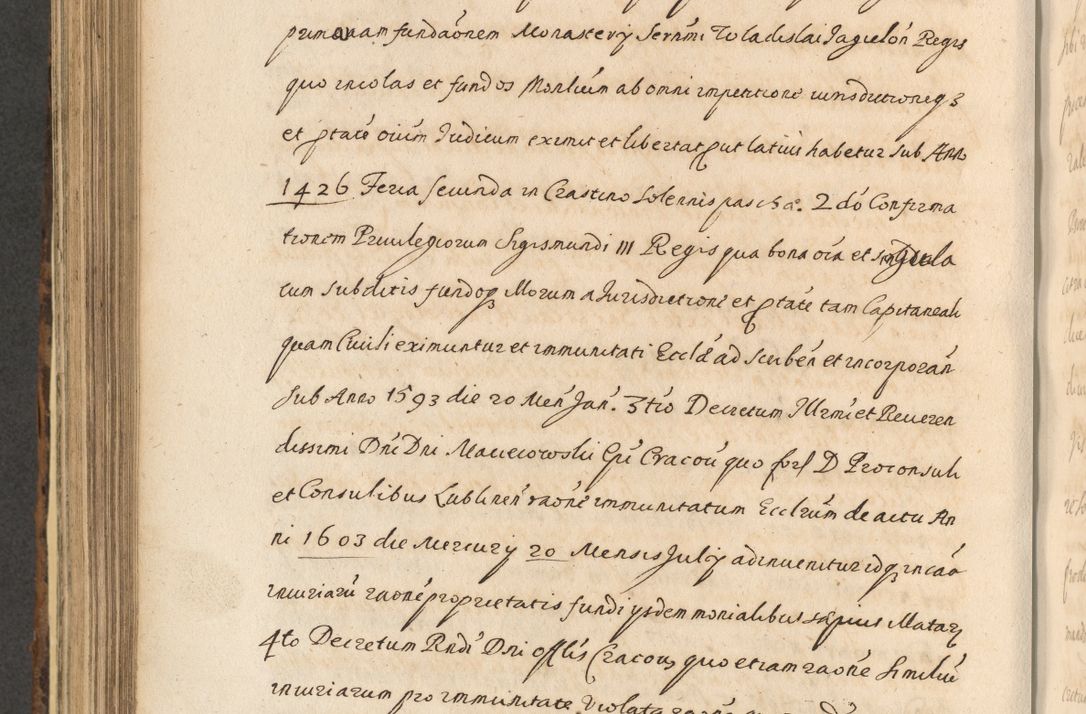 primavam fundaónem Monastery Sernmi Wladislai Jagielón Regis
quo incolas et fundos Monliúm ab omni impetitione iurisdictioneq3
et ptaté oiúm Judicum eximit et libertat put latius habetur sub Ann
1426 Feria secunda in Crastino solennis paschae. 2dó Confirma
tionem Priuilegiorum Sigismundi III Regis qua bona oía et
cum subditis fundoq Morum a Jurisdictioné et ptaté tam Capitaneali
quam Ciuili eximuntur et immunitati Ecclae ad scribén et incorporán
sub Anno 1593 die 20 Men Jan. 3tió Decretum Illrmi et Reueren
dissimi Dni Dni Macieiowski Epi Cracoú quo forl D Proconsuli
et Consulibus Lublinen raoné immunitatum Ecclrúm de actu An
ni 1603 die Mercurÿ 20 Mensis Julÿ adinuenitur idq in caó
iniuriarú raoné proprietatis fundi ysdem monialibus sepius Matarz
4to Decretum Rndi Dni offlis Cracou quo etiam raoné similiú
iniuriarum pro immunitate violata raoné